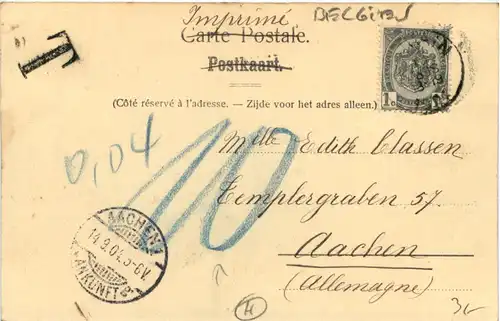 Imprimé
BELGIEN
T
Carte Postale.
Postkaart.
(Côté réservé à l'adresse. – Zijde voor het adres alleen.)
1c
0,04
10
Mlle Edith Classen
Templergraben 57.
Aachen
(Allemagne)
AACHEN 1
14.9.04.5-6V.
ANKUNFT